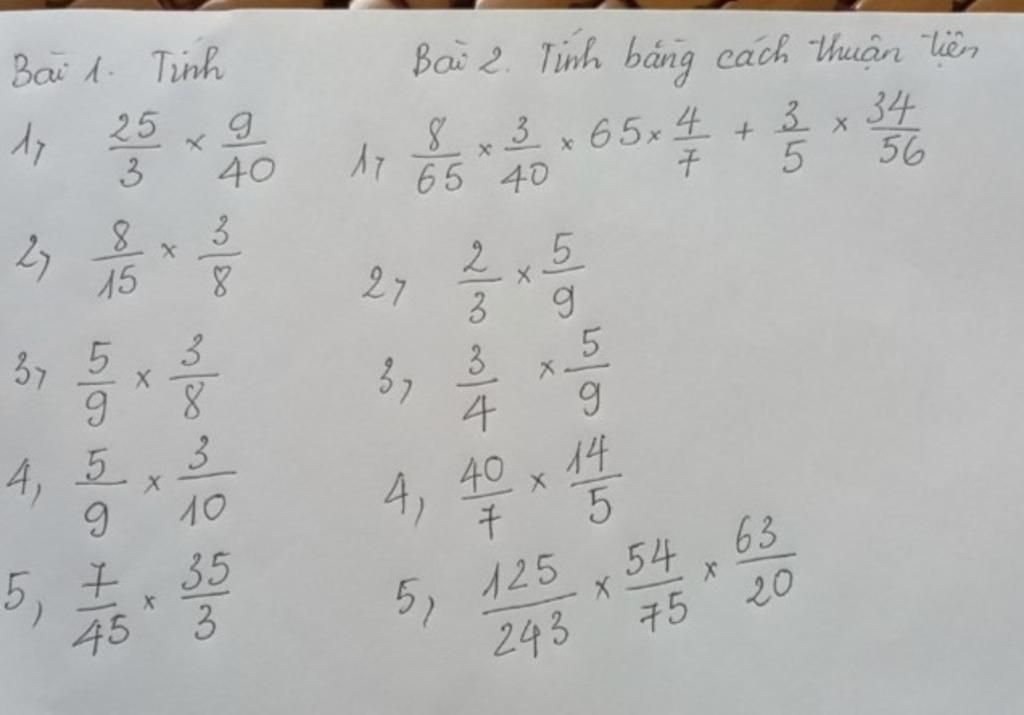 Bài 1. Tính
1, 25/3 × 9/40
2, 8/15 × 3/8
3, 5/9 × 3/8
4, 5/9 × 3/10
5, 7/45 × 35/3
Bài 2. Tính bằng cách thuận tiện
1, 8/65 × 3/40 × 65 × 4/7 + 3/5 × 34/56
2, 2/3 × 5/9
3, 3/4 × 5/9
4, 40/7 × 14/5
5, 125/243 × 54/75 × 63/20